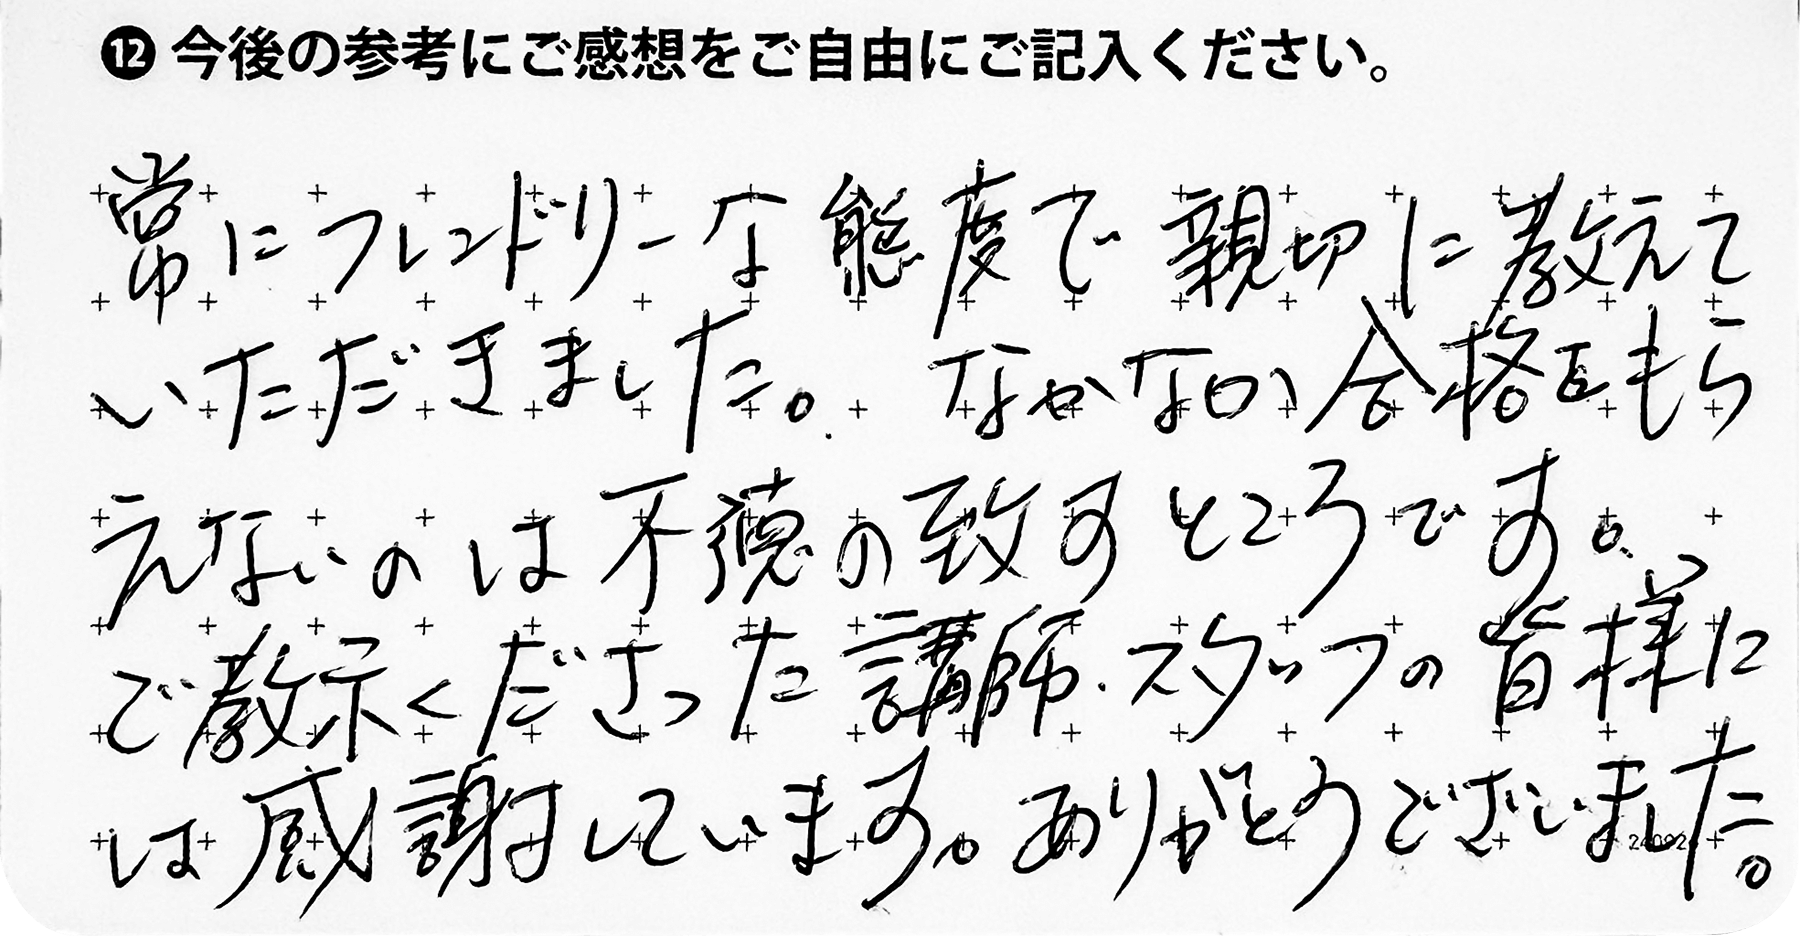 ⓬ 今後の参考にご感想をご自由にご記入ください。
常にフレンドリーな態度で親切に教えて
いただきました。なかなか合格をもら
えないのは不徳の致すところです。
ご教示くださった講師・スタッフの皆様に
は感謝しています。ありがとうございました。